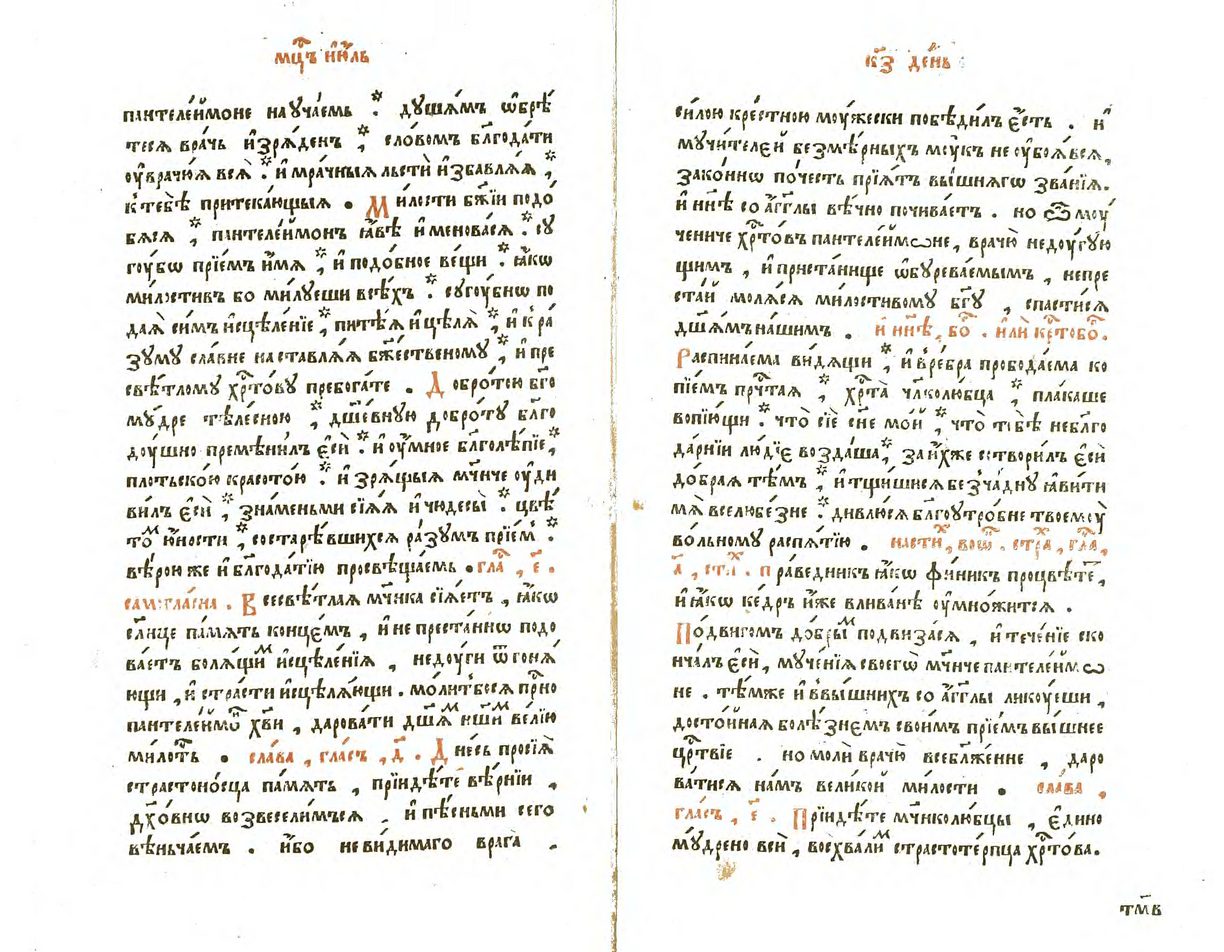 мцⷭ҇ъ и҆ю҆́ль
пантеле́ймоне научае́мь ⁘ душа́мъ ѡ҆брѣ́
теся врачь и҆зрѧ́денъ ⁘ сло́вомъ блгода́ти
оу҆врачюѧ всѧ̀ ⁘ и҆ мра́чныѧ льстѝ и҆збавлѧ́ѧ ⁘
к тебѣ̀ притека́ющыѧ . Ми́лости бж҃їи подо
бѧсѧ ⁘ пантеле́ймонъ ꙗ҆́вѣ и҆менова́сѧ ⁘ су
гоу́бѡ прїе́мъ и҆́мѧ ⁘ и҆ подо́бное ве́щи ⁘ ꙗ҆́кѡ
ми́лостивъ бо ми́луеши всѣ́хъ ⁘ сугоу́бнѡ по
даѧ̀ си́мъ и҆сцѣле́нїе ⁘ пита́ѧ и҆ цѣлѧ̀ ⁘ и҆ к ра́
зуму сла́вне наставлѧ́ѧ бж҃е́ственому ⁘ и҆ пре
свѣ́тлому хрⷭ҇то́ву пребога́те . Добро́тою бг҃о
му́дре тѣле́сною ⁘ дш҃е́вную добро́ту бл҃го
доу́шно премѣни́лъ є҆сѝ ⁘ и҆ оу҆́мное бл҃голѣ́пїе ⁘
пло́тьскою красото́ю ⁘ и҆ зрѧ́щыѧ мч҃ниче оу҆ди
ви́лъ є҆сѝ ⁘ зна́меньми сїѧ́ѧ и҆ чюдесы̀ ⁘ цвѣ́
тоⷨ ю҆́ности ⁘ состарѣ́вшихсѧ ра́зумъ прїе́м ⁘
вѣ́рою же и҆ бл҃года́тїю просвѣща́емь . глаⷭ҇ , є҃ .
самогла́сна . Всесвѣ́тлаѧ мч҃нка сїѧ́етъ , ꙗ҆́кѡ
сл҃нце па́мѧть конце́мъ , и҆ не преста́ннѡ подо
ва́етъ болѧ́щиⷨ и҆сцѣле́нїѧ , неду́ги ѿгонѧ́
ющи , и҆ стра́сти и҆сцѣлѧ́ющи . моли́тьсѧ прⷭ҇но
пантеле́ймоⷩ҇ хв҃и , дарова́ти дш҃аⷨ нш҃иⷨ ве́лїю
ми́лоⷭ҇ть . сла́ва , гла́съ , д҃ . Дне́сь просїѧ̀
страстоно́сца па́мѧть , прїиде́те вѣ́рнїи ,
дх҃о́внѡ возвесели́мъсѧ , и҆ пѣ́сньми сего
вѣньча́емъ . и҆́бо неви́димаго врага̀ .
кз҃ де́нь
си́лою кре́стною моу́жески побѣди́лъ є҆́сть . и҆
мучи́телей безмѣ́рныхъ моу́къ не оу҆боѧ́всѧ ,
зако́ннѡ по́честь прїѧ́тъ вы́шнѧгѡ зва́нїѧ .
и҆ нн҃ѣ со а҆́гг҃лы вѣ́чно почива́етъ . но ѽ моу́
чениче хрⷭ҇то́въ пантеле́ймѡне , врачю̀ недоу́гую
щимъ , и҆ приста́нище ѡ҆бурева́емымъ , непре
ста́й молѧ́сѧ ми́лостивому бг҃у , спасти́сѧ
дш҃а́мъ на́шимъ . и҆ нн҃ѣ , боⷢ҇ . и҆лѝ крⷭ҇тобоⷢ҇ .
Распина́ема ви́дѧщи ⁘ и҆ в ре́бра пробода́ема ко
пїе́мъ прⷱ҇таѧ ⁘ хрⷭ҇та̀ чл҃колю́бца ⁘ пла́каше
вопїю́щи ⁘ что̀ сїѐ сн҃е мо́й ⁘ что̀ тебѣ̀ небл҃го
да́рнїи лю́дїе возда́ша ⁘ за и҆́хже сотвори́лъ є҆сѝ
до́браѧ тѣ́мъ ⁘ и҆ тщи́шисѧ безча́дну ꙗ҆ви́ти
мѧ̀ вселюбе́зне ⁘ дивлю́сѧ бл҃гоутро́бне твоемоу̀
во́льному распѧ́тїю . настиⷯ , воѡⷭ҇ . стрⷯа , гла́ ,
а҃ , стиⷯ . Пра́ведникъ ꙗ҆́кѡ фи́никъ процвѣте́тъ ,
и҆ ꙗ҆́кѡ ке́дръ и҆́же в лива́нѣ оу҆мно́житсѧ .
По́двигомъ до́брыⷨ подвиза́сѧ , и҆ тече́нїе ско
нча́лъ є҆сѝ , муче́нїѧ своегѡ̀ мч҃ниче пантеле́ймѡ
не . тѣ́мже и҆ в вы́шнихъ со а҆́гг҃лы лико́уеши ,
досто́йнаѧ болѣ́знемъ свои́мъ прїе́мъ вы́шнее
црⷭ҇твїе . но молѝ врачю̀ всебл҃же́нне , даро
ва́тисѧ на́мъ вели́кой ми́лости . сла́ва ,
гла́съ , є҃ . Прїиде́те мч҃нколю́бцы , є҆ди́но
му́дрено всѝ , восхва́лиⷨ страстоте́рпца хрⷭ҇то́ва .
тм҃в